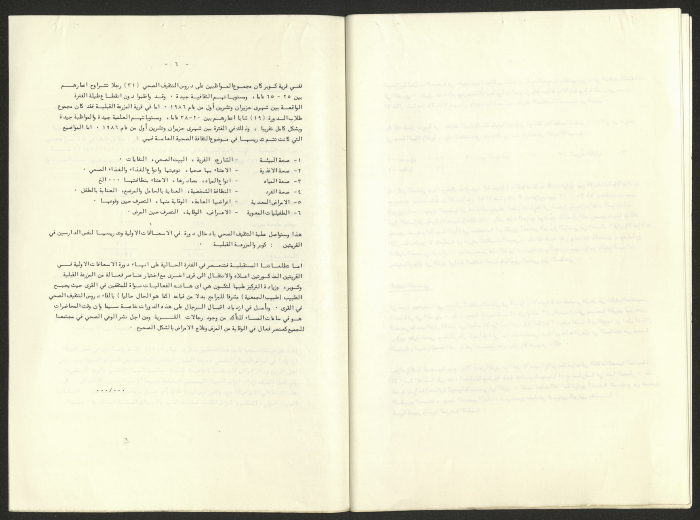 - ٦ -
ففي قرية كوبر كان مجموع المواظبين على دروس التثقيف الصحي (٣١) رجلا تتراوح اعمارهم
بين ٢٥ - ٦٥ عاما، ومستوياتهم الثقافية جيدة . وقد واظبوا دون انقطاع طيلة الفترة
الواقعة بين شهري حزيران وتشرين أول من عام ١٩٨٦ . اما في قرية المزرعة القبلية فقد كان مجموع
طلاب الدورة (١٩) شابا اعمارهم بين ٢٠-٣٨ عاما، ومستوياتهم العلمية جيدة والمواظبة جيدة
وبشكل كامل تقريبا ، وذلك في الفترة بين شهري حزيران وتشرين أول من عام ١٩٨٦ . اما المواضيع
التي كانت تتم تدريسها في موضوع الثقافة الصحية العامة فهي :
١- صحة البيئة - الشارع، القرية، البيت الصحي، النفايات .
٢- صحة الاغذية - الاعتناء بها صحيا، نوعيتها وانواع الغذاء والغذاء الصحي .
٣- صحة المياه - انواع المياه، مصادرها، الاعتناء بنظافتها ... الخ
٤- صحة الفرد - النظافة الشخصية، العناية بالحامل والمرضع، العناية بالطفل .
٥- الامراض المعدية - اعراضها العامة، الوقاية منها، التصرف حين وقوعها .
٦- الطفيليات المعوية - الاعراض، الوقاية، التصرف حين المرض .
هذا وستواصل عملية التثقيف الصحي بادخال دورة في الاسعافات الاولية وتدريسها لنفس الدارسين في
القريتين : كوبر والمزرعة القبلية .
اما تطلعاتنا المستقبلية فتنحصر في الفترة الحالية على انهاء دورة الاسعافات الاولية فـــي
القريتين المذكورتين اعلاه والانتقال الى قرى اخرى مع اختيار عناصر فعالة من المزرعة القبلية
وكوبر، وزيادة التركيز عليها لتكون هي اي هذه الفعاليات نواة للمثقفين في القرى حيث يصبح
الطبيب (طبيب الجمعية) مشرفا للبرامج بدلا من قيامه (كما هو الحال حاليا) بالقاء دروس التثقيف الصحي
في القرى . ونأمل في ازدياد اقبال الرجال على هذه الدورات خاصة سيما وان وقت المحاضرات
هو في ساعات المساء للتأكد من وجود رجالات القـــرية ومن اجل نشر الوعي الصحي في مجتمعنا
للجميع كعنصر فعال في الوقاية من المرض وعلاج الامراض بالشكل الصحيح .
٠٠٠/٠٠٠